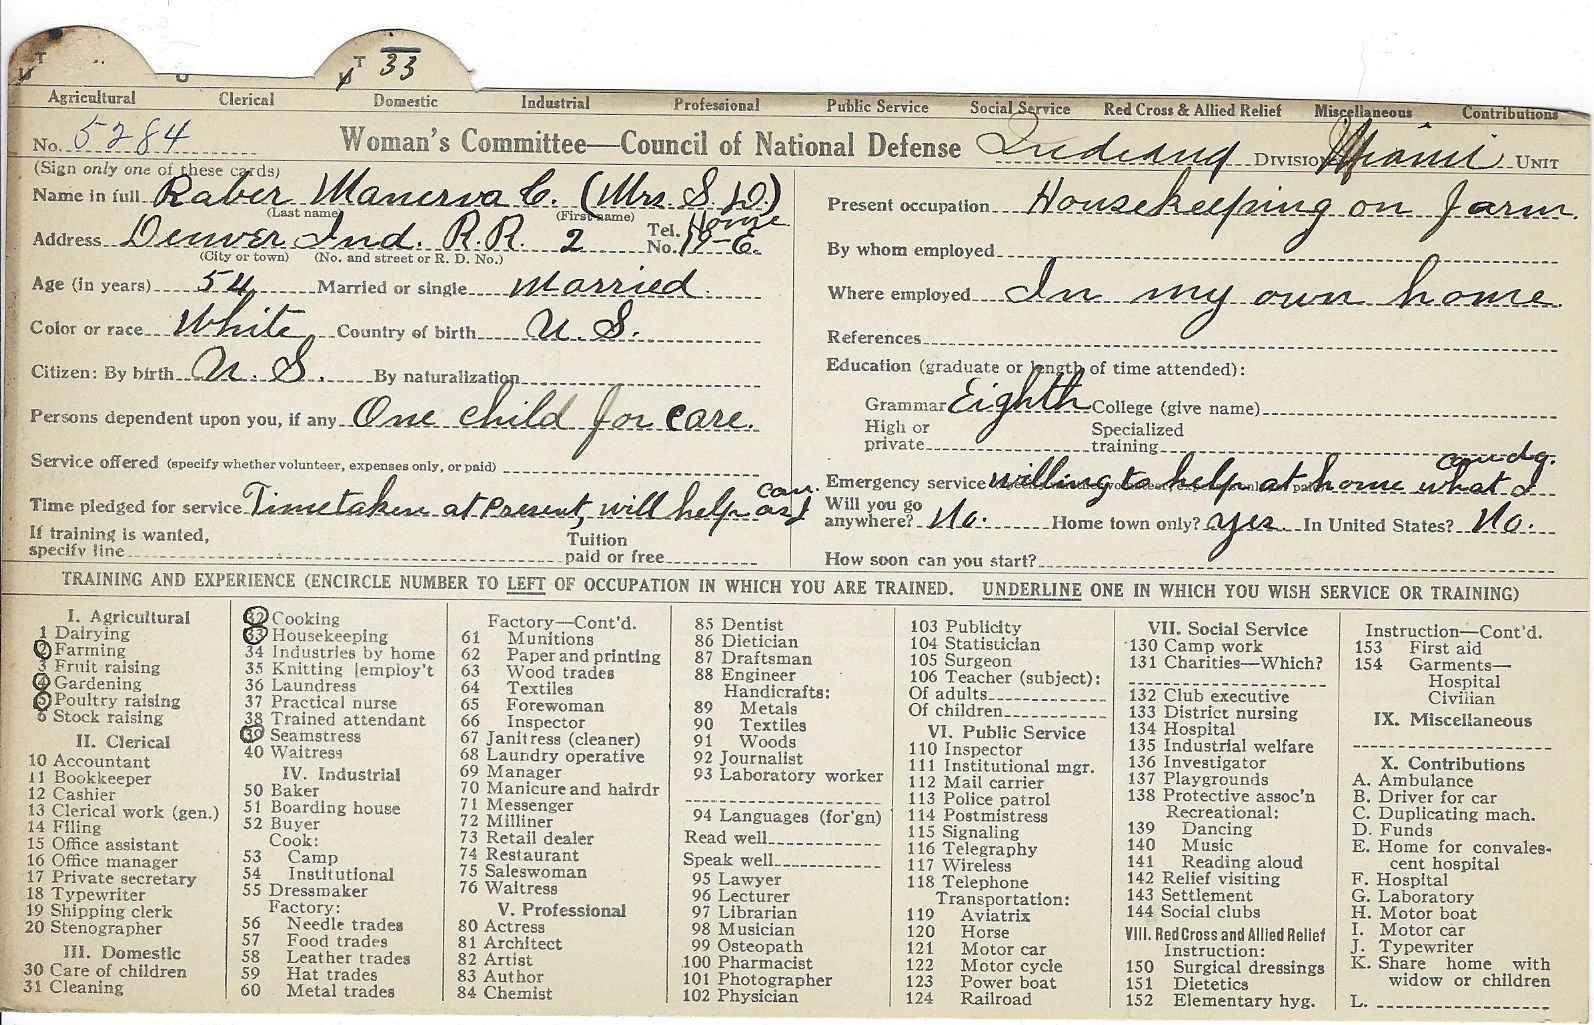 T T 33
U U
Agricultural Clerical Domestic Industrial Professional Public Service Social Service Red Cross & Allied Relief Miscellaneous Contributions
No. 5284 Woman's Committee—Council of National Defense Indiana DIVISION Miami UNIT
(Sign only one of these cards)
Name in full Raber Manerva C. (Mrs. S. D.)
(Last name) (First name)
Address Denver Ind. R.R. 2 Tel. No. Home 19-E.
(City or town) (No. and street or R. D. No.)
Age (in years) 54 Married or single married
Color or race White Country of birth U. S.
Citizen: By birth U. S. By naturalization
Persons dependent upon you, if any One child for care.
Service offered (specify whether volunteer, expenses only, or paid)
Time pledged for service Time taken at present, will help as I can.
If training is wanted,
specify line
Tuition
paid or free
Present occupation Housekeeping on farm.
By whom employed
Where employed In my own home.
References
Education (graduate or length of time attended):
Grammar Eighth College (give name)
High or
private
Specialized
training
Emergency service willing to help at home what I can do.
Will you go
anywhere? No. Home town only? yes. In United States? No.
How soon can you start?
TRAINING AND EXPERIENCE (ENCIRCLE NUMBER TO LEFT OF OCCUPATION IN WHICH YOU ARE TRAINED. UNDERLINE ONE IN WHICH YOU WISH SERVICE OR TRAINING)
I. Agricultural
1 Dairying
2 Farming
3 Fruit raising
4 Gardening
5 Poultry raising
6 Stock raising
II. Clerical
10 Accountant
11 Bookkeeper
12 Cashier
13 Clerical work (gen.)
14 Filing
15 Office assistant
16 Office manager
17 Private secretary
18 Typewriter
19 Shipping clerk
20 Stenographer
III. Domestic
30 Care of children
31 Cleaning
32 Cooking
33 Housekeeping
34 Industries by home
35 Knitting [employ't
36 Laundress
37 Practical nurse
38 Trained attendant
39 Seamstress
40 Waitress
IV. Industrial
50 Baker
51 Boarding house
52 Buyer
Cook:
53 Camp
54 Institutional
55 Dressmaker
Factory:
56 Needle trades
57 Food trades
58 Leather trades
59 Hat trades
60 Metal trades
Factory—Cont'd.
61 Munitions
62 Paper and printing
63 Wood trades
64 Textiles
65 Forewoman
66 Inspector
67 Janitress (cleaner)
68 Laundry operative
69 Manager
70 Manicure and hairdr
71 Messenger
72 Milliner
73 Retail dealer
74 Restaurant
75 Saleswoman
76 Waitress
V. Professional
80 Actress
81 Architect
82 Artist
83 Author
84 Chemist
85 Dentist
86 Dietician
87 Draftsman
88 Engineer
Handicrafts:
89 Metals
90 Textiles
91 Woods
92 Journalist
93 Laboratory worker
94 Languages (for'gn)
Read well
Speak well
95 Lawyer
96 Lecturer
97 Librarian
98 Musician
99 Osteopath
100 Pharmacist
101 Photographer
102 Physician
103 Publicity
104 Statistician
105 Surgeon
106 Teacher (subject):
Of adults
Of children
VI. Public Service
110 Inspector
111 Institutional mgr.
112 Mail carrier
113 Police patrol
114 Postmistress
115 Signaling
116 Telegraphy
117 Wireless
118 Telephone
Transportation:
119 Aviatrix
120 Horse
121 Motor car
122 Motor cycle
123 Power boat
124 Railroad
VII. Social Service
130 Camp work
131 Charities—Which?
132 Club executive
133 District nursing
134 Hospital
135 Industrial welfare
136 Investigator
137 Playgrounds
138 Protective assoc'n
Recreational:
139 Dancing
140 Music
141 Reading aloud
142 Relief visiting
143 Settlement
144 Social clubs
VIII. Red Cross and Allied Relief
Instruction:
150 Surgical dressings
151 Dietetics
152 Elementary hyg.
Instruction—Cont'd.
153 First aid
154 Garments—
Hospital
Civilian
IX. Miscellaneous
X. Contributions
A. Ambulance
B. Driver for car
C. Duplicating mach.
D. Funds
E. Home for convales-
cent hospital
F. Hospital
G. Laboratory
H. Motor boat
I. Motor car
J. Typewriter
K. Share home with
widow or children
L.